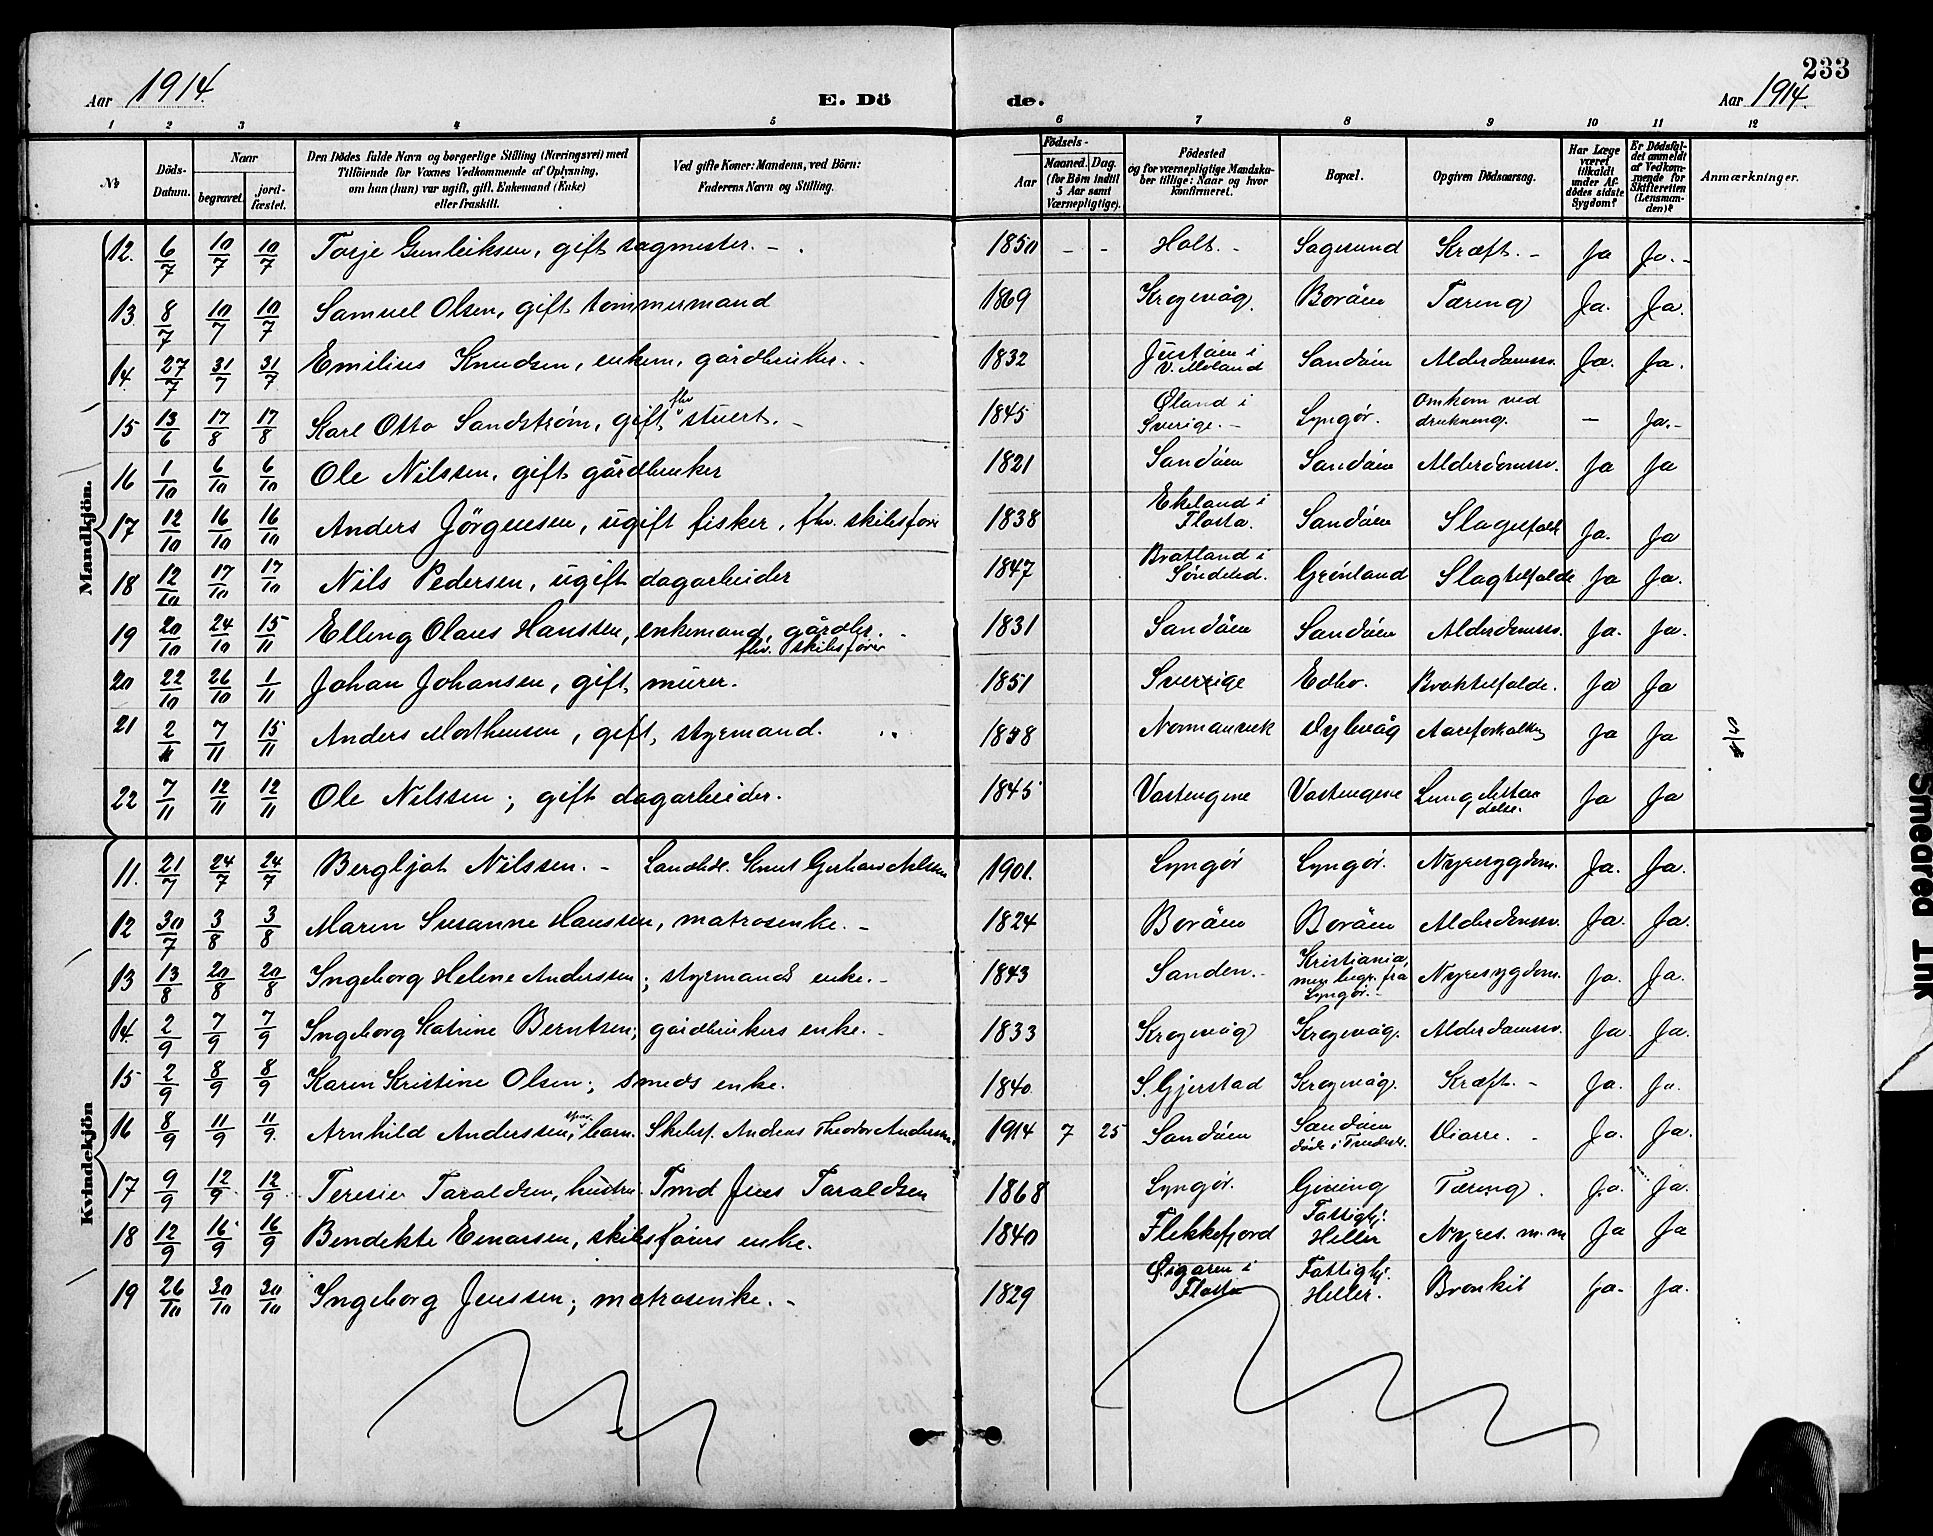 233
Aar 1914.
E. Döde.
Aar 1914.
1 2 3 4 5 6 7 8 9 10 11 12
No
Döds-Datum.
Naar
begravet.
jord-fæstet.
Den Dödes fulde Navn og borgerlige Stilling (Næringsvei) med Tilföiende for Voxnes Vedkommende af Oplysning, om han (hun) var ugift, gift, Enkemand (Enke) eller fraskilt.
Ved gifte Koner: Mandens, ved Börn: Faderens Navn og Stilling.
Födsels-
Aar
Maaned. Dag.
(for Börn indtil 5 Aar samt Værnepligtige).
Födested og for værnepligtige Mandskaber tillige: Naar og hvor konfirmeret.
Bopæl.
Opgiven Dödsaarsag.
Har Læge været tilkaldt under Afdödes sidste Sygdom?
Er Dödsfaldet anmeldt af Vedkommende for Skifteretten (Lensmanden)?
Anmærkninger.
Mandkjön.
12. 6/7 10/7 10/7 Torje Gunleiksen, gift sagmester. - 1850 - - Holt. - Sagesund Kræft. - Ja Ja. -
13. 8/7 10/7 10/7 Samuel Olsen, gift tømmermand 1869 Krogevåg. Boröen Tæring Ja. Ja.
14. 27/7 31/7 31/7 Emilius Knudsen, enkem, gårdbruker. - 1832 Justöen i V. Moland Sandöen Alderdomssv. Ja. Ja.
15 13/6 17/8 17/8 Karl Otto Sandstrøm, gift fhv stuert. - 1845 Øland i Sverige. - Lyngör. Omkom ved drukning. - Ja. -
16 1/10 6/10 6/10 Ole Nilssen, gift gårdbruker 1821 Sandöen Sandöen Alderdomssv. Ja Ja
17 12/10 16/10 16/10 Anders Jörgensen, ugift fisker, fhv. skibsförer 1838 Ekeland i Flosta. Sandöen Slagtilfælde Ja. Ja
18 12/10 17/10 17/10 Nils Pedersen, ugift dagarbeider 1847 Bratland i Söndeled. Grönland Slagtilfælde Ja Ja.
19 20/10 24/10 15/11 Elling Olaus Hanssen, enkemand, gårdbr. fhv. skibsförer 1831 Sandöen Sandöen Alderdomssv. Ja. Ja.
20 22/10 26/10 1/11 Johan Johansen, gift, murer. 1851 Sverige Edbo. Brokktilfælde. Ja Ja
21 2/11 7/11 15/11 Anders Morthensen, gift, styrmand. 1858 Normansvik Dybvåg Aareforkalkning Ja Ja
22 7/11 12/11 12/11 Ole Nilssen; gift dagarbeider. 1845 Vastengene Vastengene Lungebetændelse. Ja Ja
Kvindekjön
11. 21/7 24/7 24/7 Bergljot Nilssen. - Landhdl. Knut Gerhard Nilssen 1901. Lyngör Lyngör. Nyresygdom. Ja. Ja.
12 30/7 3/8 3/8 Maren Susanne Hanssen, matrosenke. - 1824 Boröen Boröen Alderdomssv. Ja. Ja.
13 13/8 20/8 20/8 Ingeborg Helene Anderssen; styrmands enke. - 1843 Sanden. - Kristiania, men begr. fra Lyngör. - Nyresygdom. Ja. Ja.
14. 2/9 7/9 7/9 Ingeborg Katrine Berntsen; gårdbrukers enke. - 1833 Krogevåg Krogevåg. Alderdomssv. Ja. Ja.
15 2/9 8/9 8/9 Karen Kristine Olsen; smeds enke. 1840 S. Gjerstad Krogevåg. Kræft. - Ja. Ja.
16 8/9 11/9 11/9. Arnhild Anderssen, spæd barn. Skibsf. Anders Theodor Anderssen 1914 7 25 Sandöen Sandöen döde i Tvedestr. Diarre. - Ja. Ja.
17 9/9 12/9 12/9 Teresie Taraldsen, hustru. Tmd Jens Taraldsen 1868 Lyngör. Gjeving Tæring. Ja. Ja.
18 12/9 16/9 16/9 Bendekte Enarsen, skibsförers enke. 1840 Flekkefjord Fattighj. Heller Nyres. m.m Ja Ja
19 26/10 30/10 30/10 Ingeborg Jenssen; matrosenke. - 1829 Øigaren i Flosta Fattighj. Heller. Bronkit Ja. Ja.
Smeared Ink